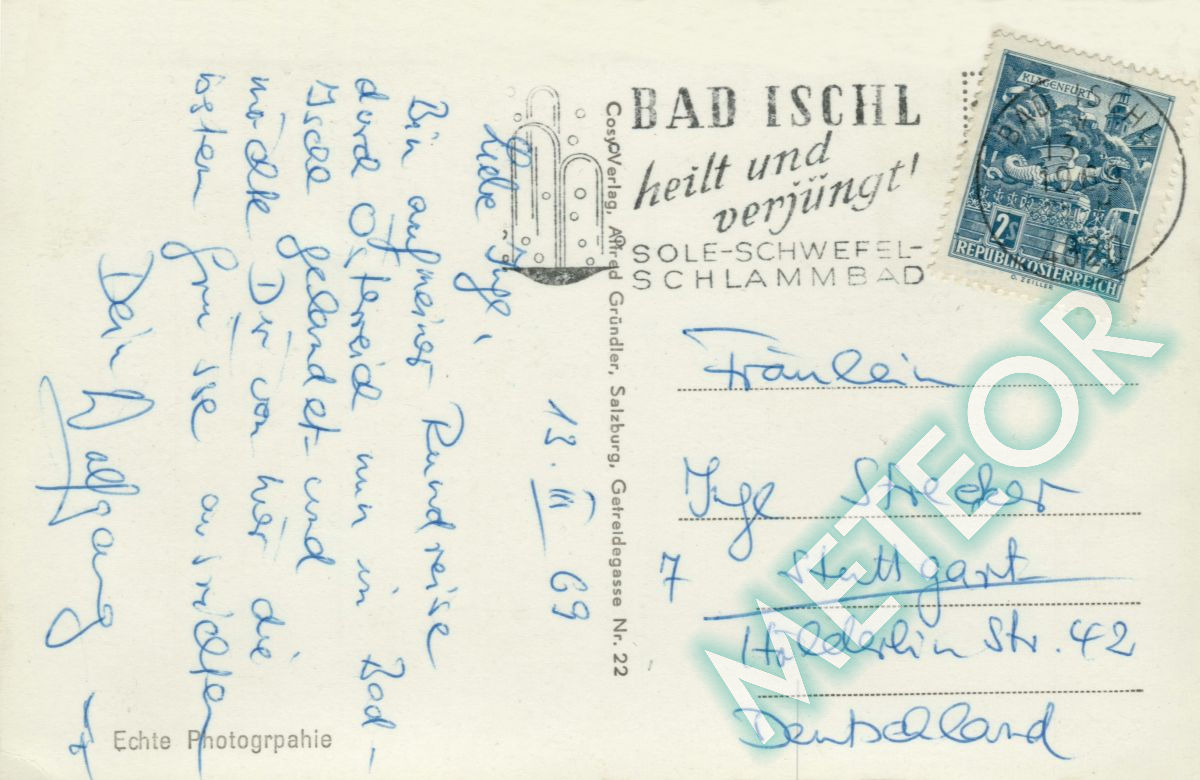 Liebe Inge,
13. III 69
Bin auf meiner Rundreise
durch Österreich nun in Bad-
Ischl gelandet und
möchte Dir von hier die
besten Grüsse ausrichten
Dein Wolfgang
Echte Photogrpahie
Cosy-Verlag, Alfred Gründler, Salzburg, Getreidegasse Nr. 22
BAD ISCHL
heilt und
verjüngt!
SOLE-SCHWEFEL-
SCHLAMMBAD
KLAGENFURT
2S
REPUBLIK ÖSTERREICH
O. ZEILLER
BAD ISCHL
Fräulein
Inge Strecker
7 Stuttgart
Hölderlin Str. 42
Deutschland
METEOR